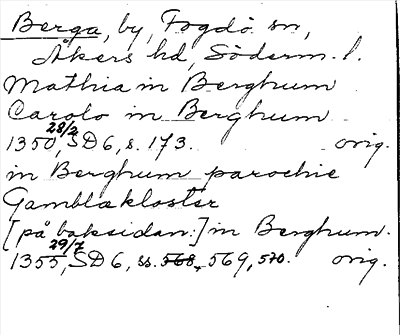 Berga, by, Fogdö sn,
Åkers hd, Söderm. l.
Mathia in Berghum
Carolo in Berghum
1350 28/2, SD 6, s. 173. orig.
in Berghum parochie
Gamblakloster
[på baksidan:] in Berghum.
1355 29/7, SD 6, ss. 568, 569, 570. orig.